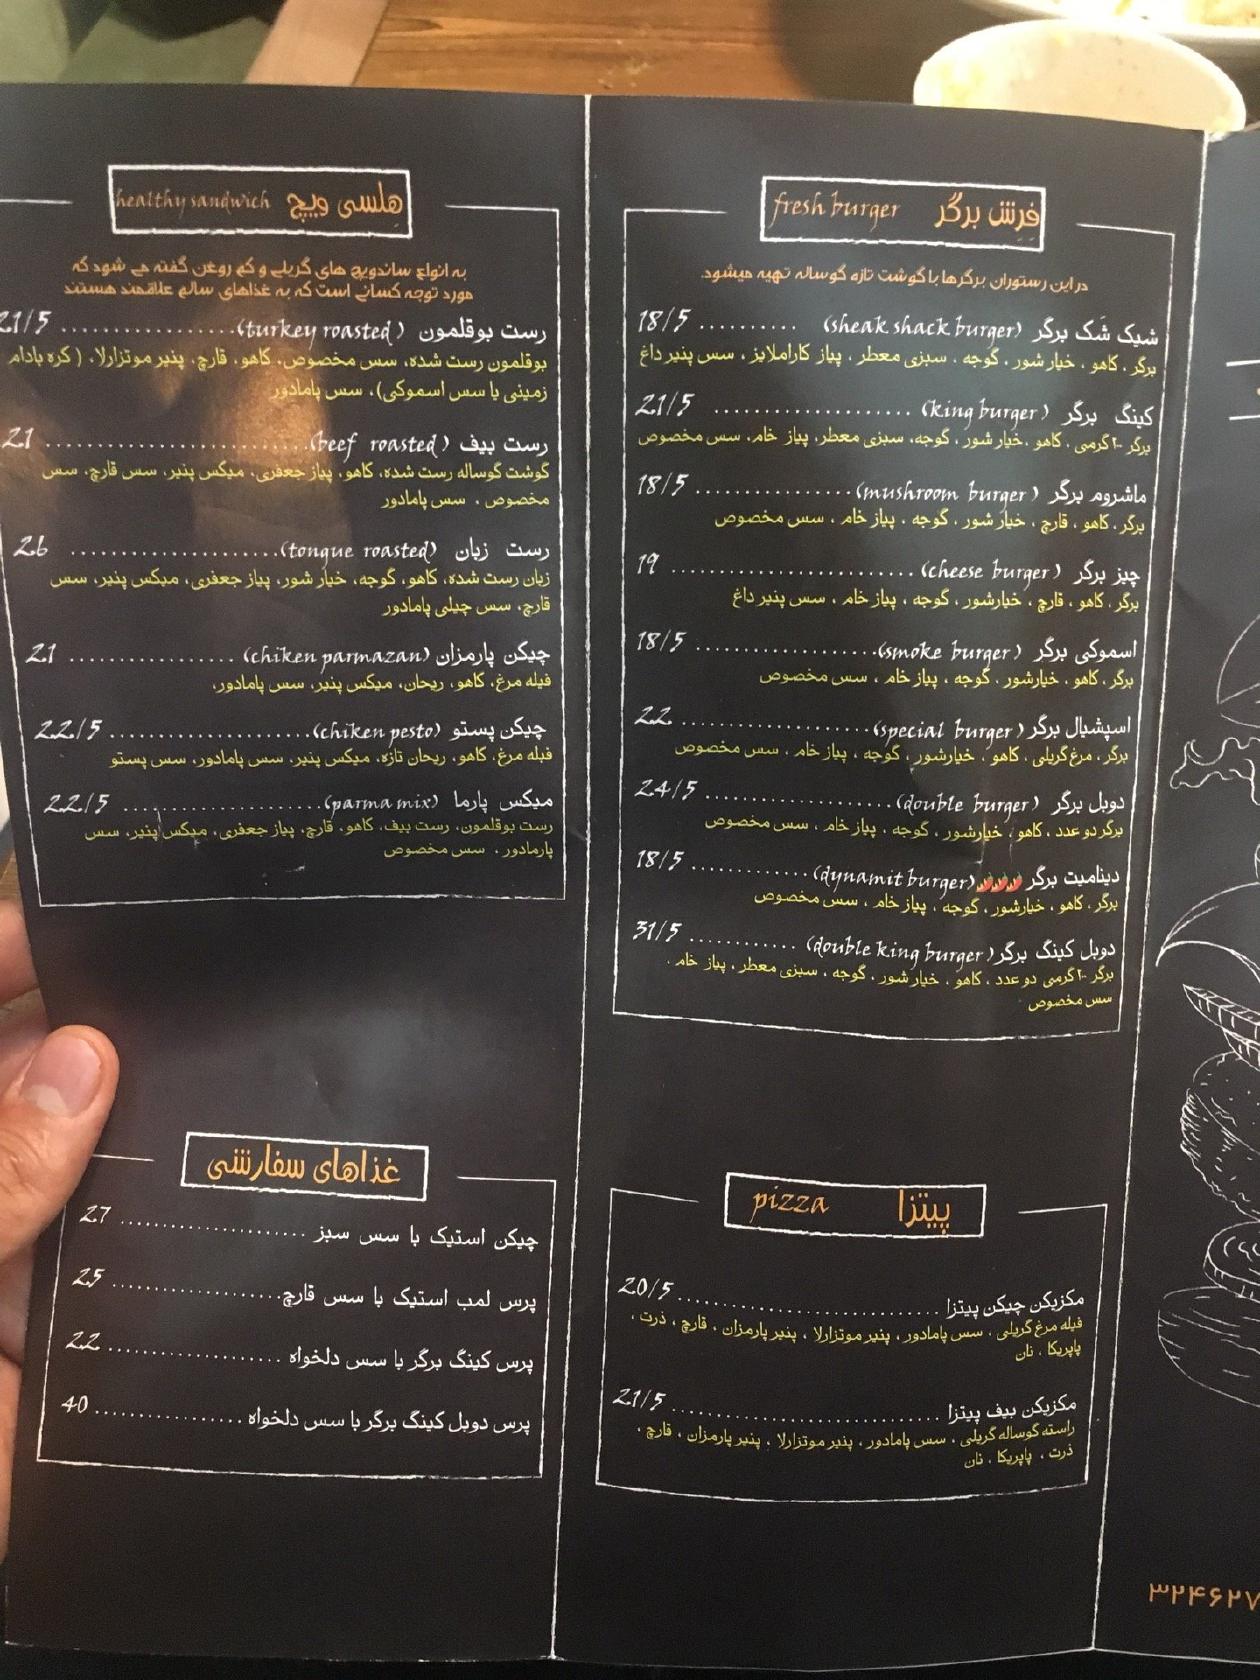 فِرِش برگر fresh burger
در این رستوران برگرها با گوشت تازه گوساله تهیه میشود.
شیک شَک برگر (sheak shack burger) .......... 18/5
برگر ، کاهو ، خیار شور ، گوجه ، سبزی معطر ، پیاز کاراملایز ، سس پنیر داغ
کینگ برگر (king burger) .................... 21/5
برگر ۲۰۰ گرمی ، کاهو ،خیار شور ، گوجه، سبزی معطر، پیاز خام، سس مخصوص
ماشروم برگر (mushroom burger) ................ 18/5
برگر ، کاهو ، قارچ ، خیار شور ، گوجه ، پیاز خام ، سس مخصوص
چیز برگر (cheese burger) ......................... 19
برگر ، کاهو ، قارچ ، خیارشور ، گوجه ، پیاز خام ، سس پنیر داغ
اسموکی برگر (smoke burger) ................... 18/5
برگر ، کاهو ، خیارشور ، گوجه ، پیاز خام ، سس مخصوص
اسپشیال برگر (special burger) .................... 22
برگر ، مرغ گریلی ، کاهو ، خیارشور ، گوجه ، پیاز خام ، سس مخصوص
دوبل برگر (double burger) .................... 24/5
برگر دو عدد ، کاهو ، خیارشور ، گوجه ، پیاز خام ، سس مخصوص
دینامیت برگر 🌶🌶🌶 (dynamit burger) ............ 18/5
برگر ، کاهو ، خیارشور ، گوجه ، پیاز خام ، سس مخصوص
دوبل کینگ برگر (double king burger) ........... 31/5
برگر ۲۰۰ گرمی دو عدد ، کاهو ، خیار شور ، گوجه ، سبزی معطر ، پیاز خام ،
سس مخصوص
پیتزا pizza
مکزیکن چیکن پیتزا .............................. 20/5
فیله مرغ گریلی ، سس پامادور ، پنیر موتزارلا ، پنیر پارمزان ، قارچ ، ذرت ،
پاپریکا ، نان
مکزیکن بیف پیتزا .............................. 21/5
راسته گوساله گریلی ، سس پامادور ، پنیر موتزارلا ، پنیر پارمزان ، قارچ ،
ذرت ، پاپریکا ، نان
هِلسی ویچ healthy sandwich
به انواع ساندویچ های گریلی و کم روغن گفته می شود که
مورد توجه کسانی است که به غذاهای سالم علاقمند هستند
رست بوقلمون (turkey roasted) ................... 21/5
بوقلمون رست شده، سس مخصوص، کاهو، قارچ، پنیر موتزارلا، ( کره بادام
زمینی یا سس اسموکی)، سس پامادور
رست بیف (beef roasted) ............................ 21
گوشت گوساله رست شده، کاهو، پیاز جعفری، میکس پنیر، سس قارچ، سس
مخصوص ، سس پامادور
رست زبان (tongue roasted) ........................ 26
زبان رست شده، کاهو، گوجه، خیار شور، پیاز جعفری، میکس پنیر، سس
قارچ، سس چیلی پامادور
چیکن پارمزان (chiken parmazan) ................ 21
فیله مرغ، کاهو، ریحان، میکس پنیر، سس پامادور،
چیکن پستو (chiken pesto) ..................... 22/5
فیله مرغ، کاهو، ریحان تازه، میکس پنیر، سس پامادور، سس پستو
میکس پارما (parma mix) ...................... 22/5
رست بوقلمون، رست بیف، کاهو، قارچ، پیاز جعفری، میکس پنیر، سس
پارمادور ، سس مخصوص
غذاهای سفارشی
چیکن استیک با سس سبز ..................... 27
پرس لمب استیک با سس قارچ ................... 25
پرس کینگ برگر با سس دلخواه .................... 22
پرس دوبل کینگ برگر با سس دلخواه ................. 40
۳۲۴۶۲۷